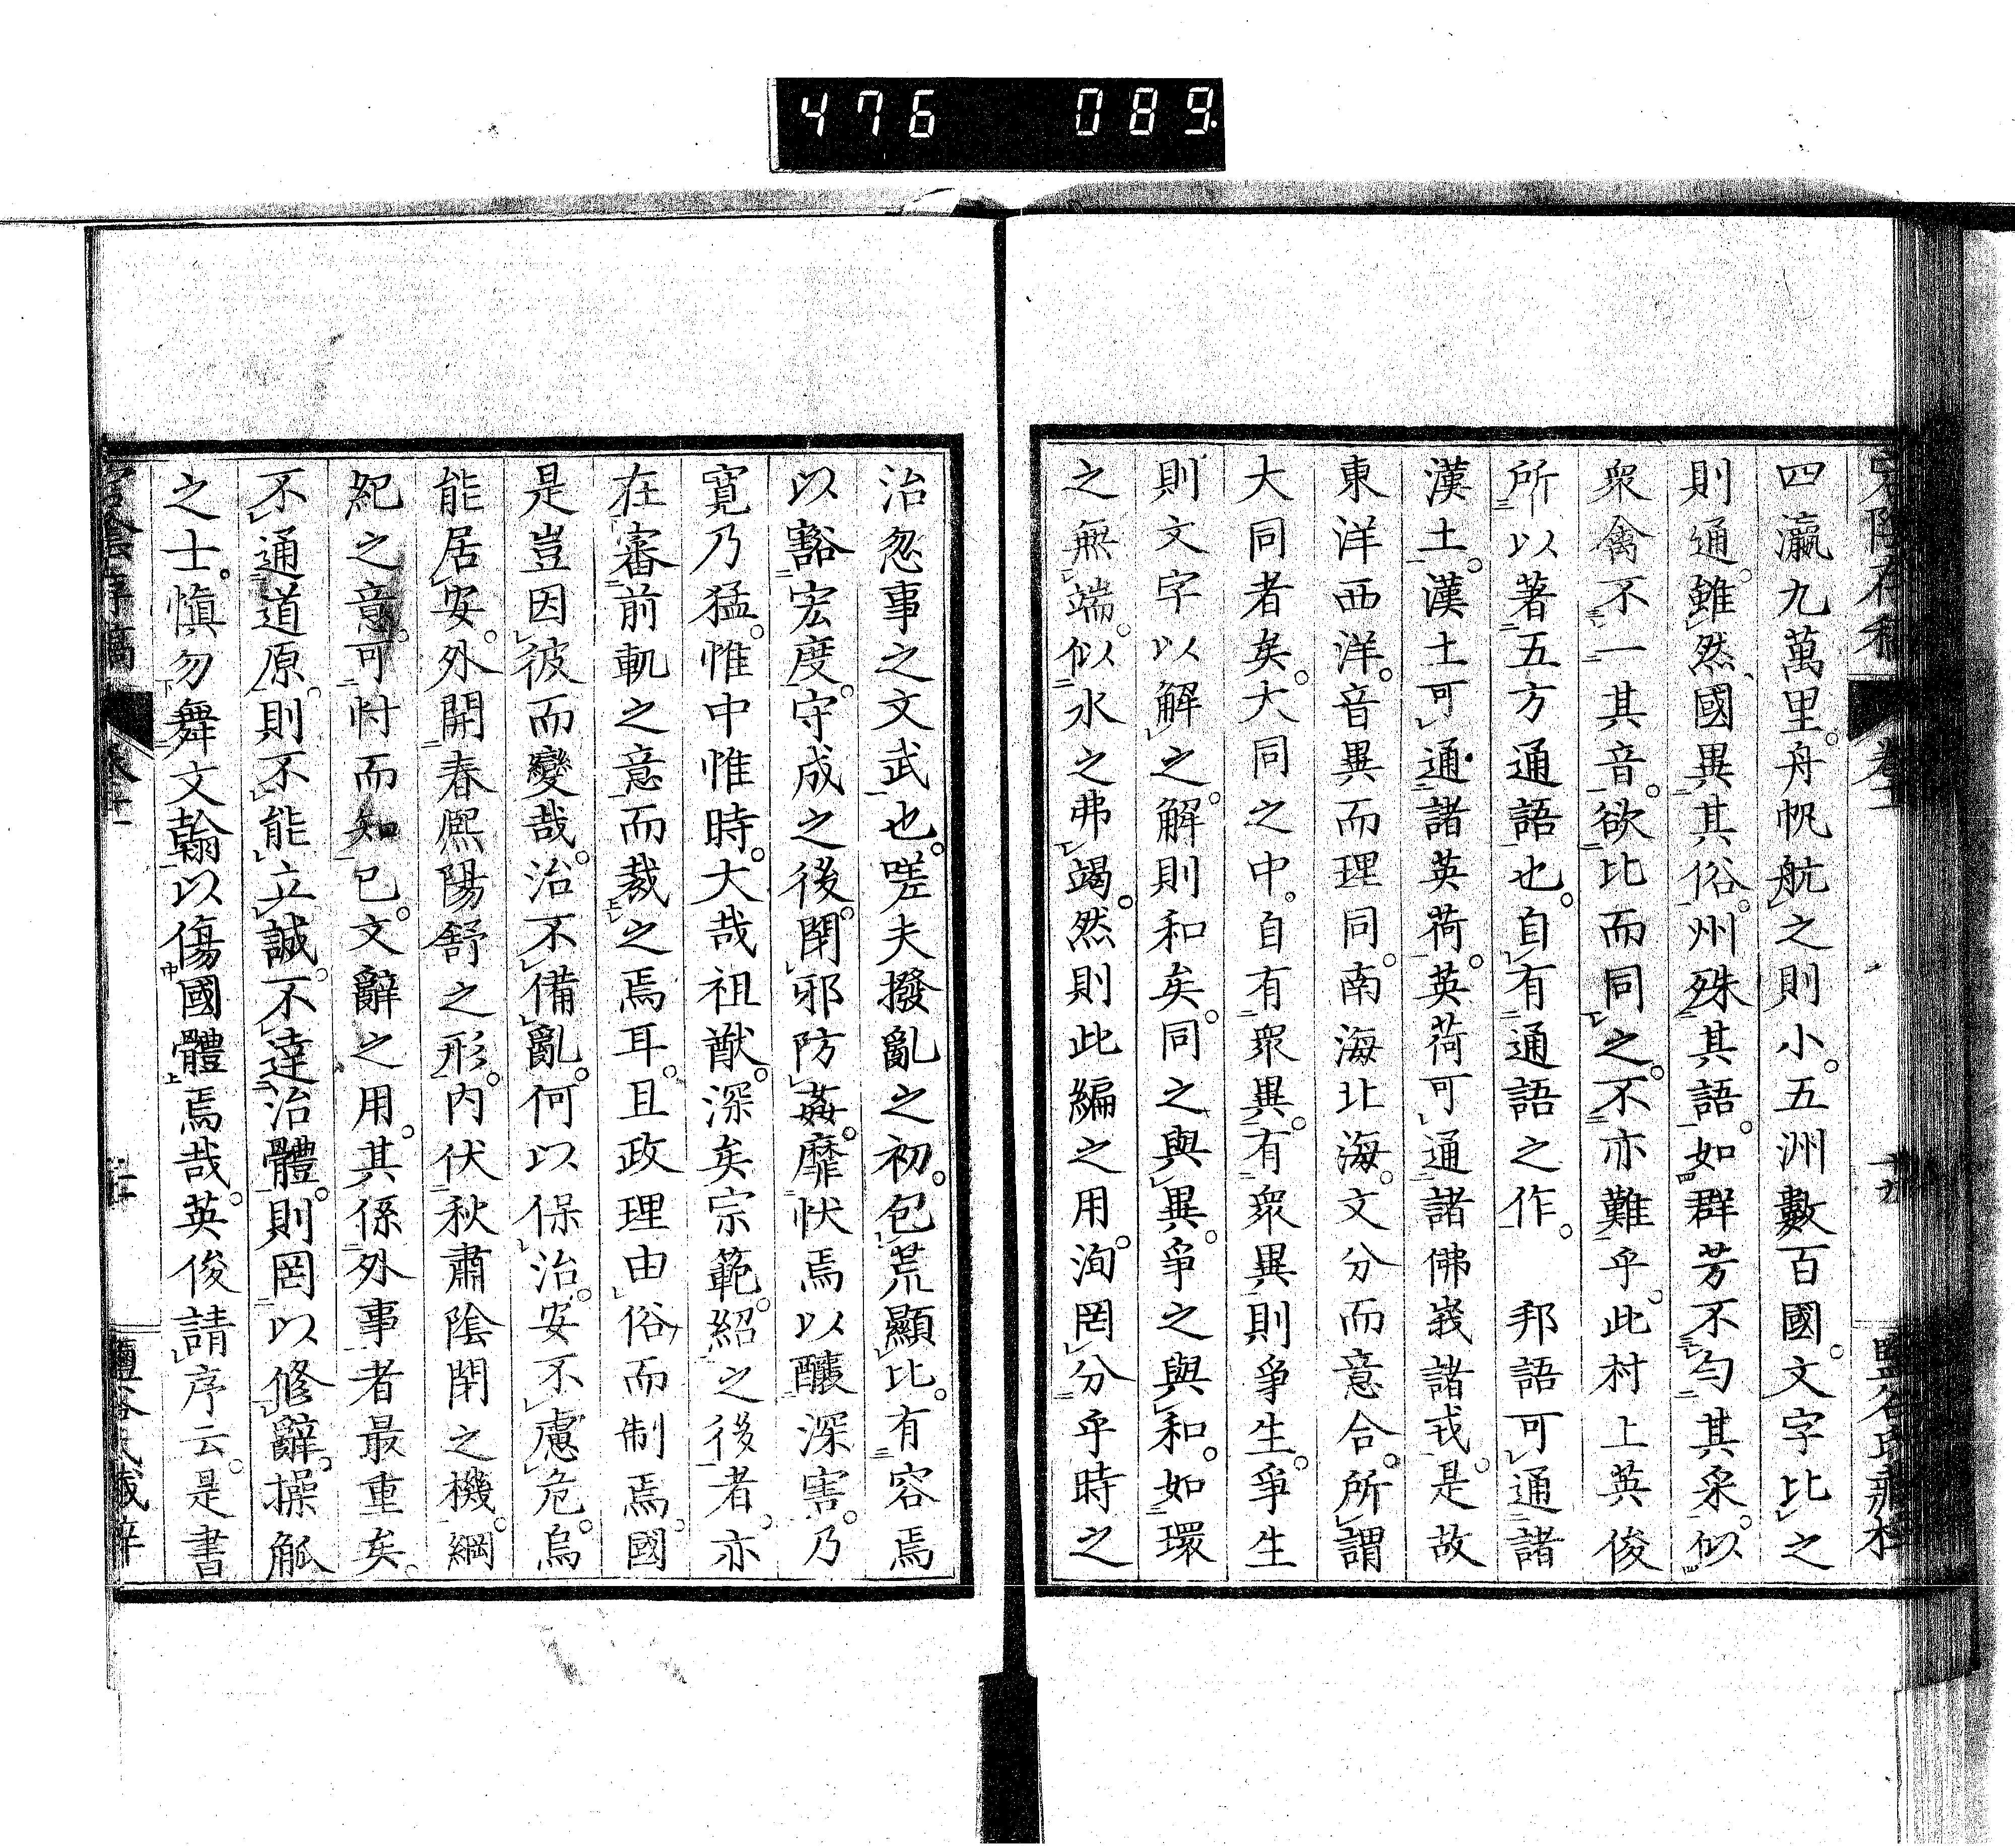 476 089
四瀛九萬里。舟帆航之則小。五洲數百國。文字比之
則通。雖然、國異其俗。州殊其語。如群芳不匀其采。似
衆禽不一其音。欲比而同之。不亦難乎。此村上英俊
所以著五方通語也。自有通語之作。　邦語可通諸
漢土。漢土可通諸英荷。英荷可通諸佛峩諸戎。是故
東洋西洋。音異而理同。南海北海。文分而意合。所謂
大同者矣。大同之中。自有衆異。有衆異則爭生。爭生
則文字以解之。解則和矣。同之與異。爭之與和。如環
之無端。似水之弗竭。然則此編之用。洵罔分乎時之
治忽事之文武也。嗟夫撥亂之初。包荒顯比。有容焉
以豁宏度。守成之後。閑邪防姦。靡忕焉以釀深害。乃
寬乃猛。惟中惟時。大哉祖猷。深矣宗範。紹之後者、亦
在審前軌之意而裁之焉耳。且政理由俗而制焉。國
是豈因彼而變哉。治不備亂。何以保治。安不慮危。烏
能居安。外開春熙陽舒之形。内伏秋肅陰閉之機。綱
紀之意。可忖而知已。文辭之用。其係外事者最重矣。
不通道原。則不能立誠。不達治體。則罔以修辭。操觚
之士。愼勿舞文翰以傷國體焉哉。英俊請序云。是書